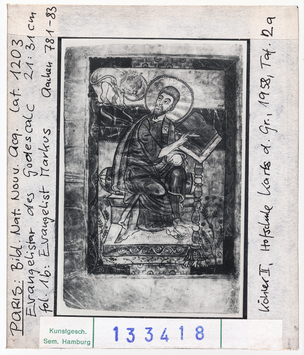 PARIS: Bibl. Nat. Nouv. Acq. Lat. 1203
Evangelistar des Godescalc 21:31cm
fol. 1b: Evangelist Markus Aachen 781-83
Köhler II, Hofschule Karls d. Gr., 1958, Taf. 2a
Kunstgesch.
Sem. Hamburg
133418